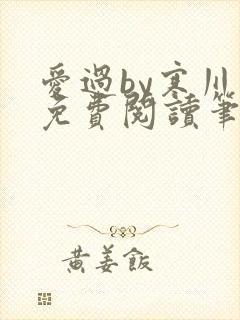 愛過by寒川
免費閱讀筆
黃姜飯